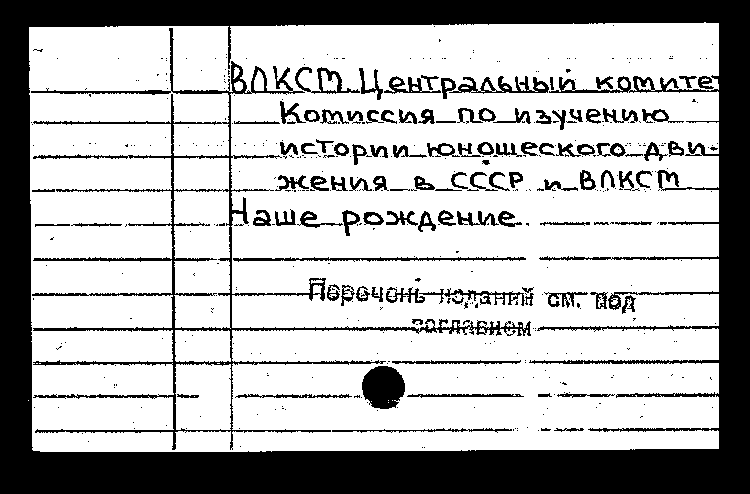 ВЛКСМ. Центральный комитет
Комиссия по изучению
истории юношеского дви-
жения в СССР и ВЛКСМ
Наше рождение.
Перечень изданий см. под
заглавием